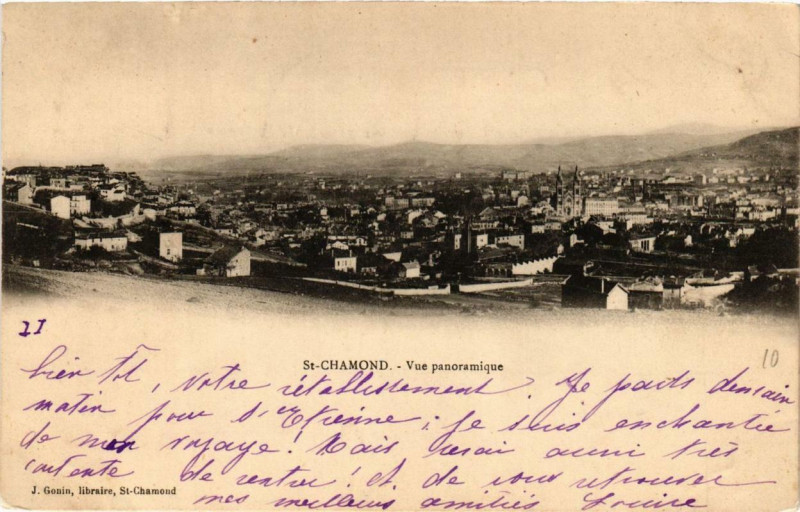 21
St-CHAMOND. - Vue panoramique
10
bien tôt, votre établissement. Je pars demain
matin pour St Etienne ; je suis enchantée
de mon voyage ! Mais serai aussi très
contente de rentrer ! et de vous retrouver
J. Gonin, libraire, St-Chamond
mes meilleurs amitiés Louise